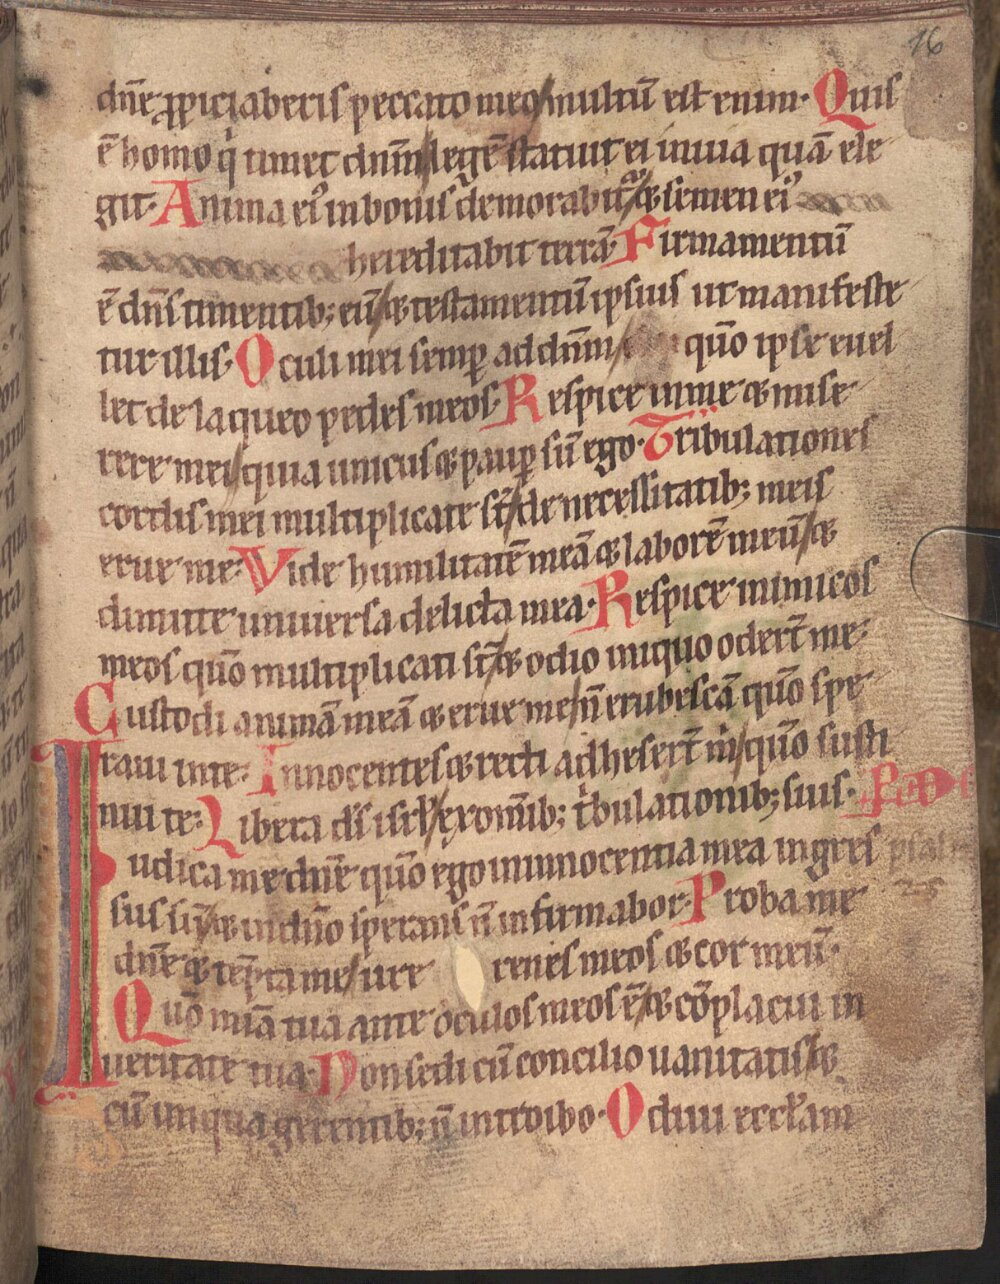 16
dn̄e ꝓpiciaberis peccato meo/multū est enim· Quis
ē homo qͥ timet dnm̄/legē statuit ei in uia quā ele
git· Anima eiꝰ in bonis demorabitᷣ/⁊ semen eiꝰ
hereditabit terrā· Firmamentū
ē dn̄s timentib; eū/⁊ testamentū ipsius ut manifeste
tur illis· Oculi mei semꝑ ad dnm̄/ quō ipse euel
let de laqueo pedes meos· Respice in me ⁊ mise
rere mei/quia unicus ⁊ pauꝑ sū ego· Tribulationes
cordis mei multiplicate st̄/de necessitatib; meis
erue me· Vide humilitatē meā ⁊ laborē meū/⁊
dimitte uniuersa delicta mea· Respice inimicos
meos quō multiplicati st̄/⁊ odio iniquo odert̄ me·
Custodi animā meā ⁊ erue me/n̄ erubescā quō spe
raui in te· Innocentes ⁊ recti adhesert̄ m̄/quō susti
nui te· Libera ds̄ isrl̄/ex omīb; tͥbulationib; suis·
Iudica me dn̄e quō ego in innocentia mea ingres psal
sus sū/⁊ in dn̄o sperans n̄ infirmabor· Proba me 25
dn̄e ⁊ tēpta me/ure renes meos ⁊ cor meū·
Quō mīa tua ante oculos meos ē/⁊ cōplacui in
ueritate tua· Non sedi cū concilio uanitatis/⁊
cū iniqua gerentib; n̄ introibo· Odiui eccl̄am